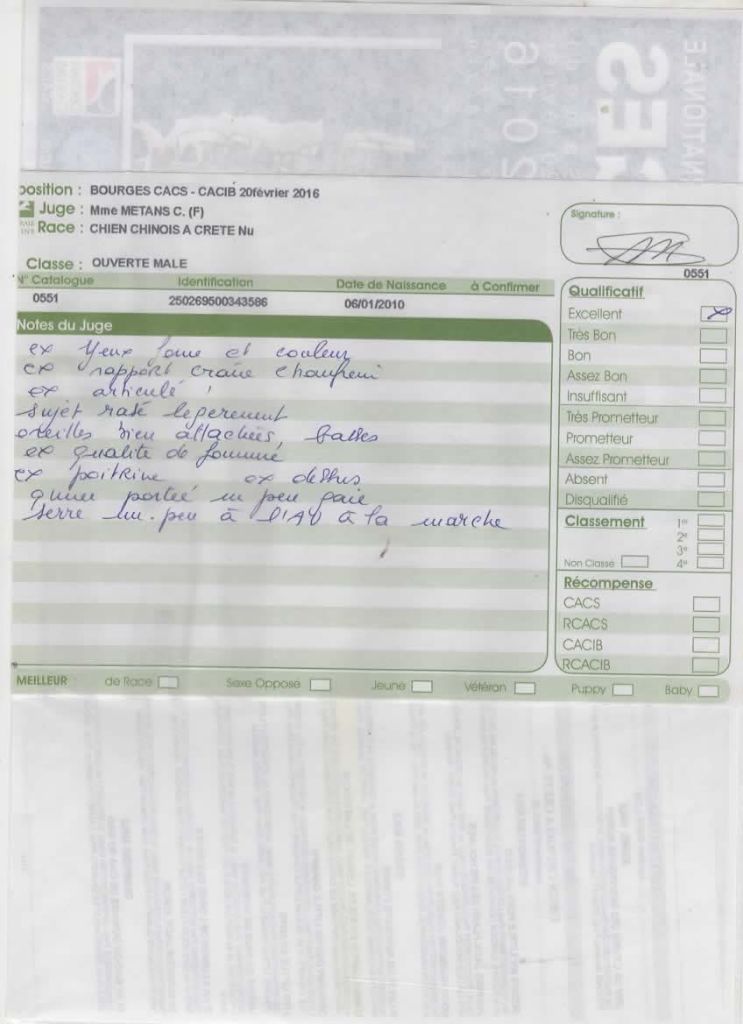 2016
NATIONALE
position : BOURGES CACS - CACIB 20février 2016
Juge : Mme METANS C. (F)
Race : CHIEN CHINOIS A CRETE Nu
Classe : OUVERTE MALE
Signature :
0551
N° Catalogue Identification Date de Naissance à Confirmer
0551 250269500343586 06/01/2010
Notes du Juge
ex yeux forme et couleur
ex rapport crane chanfrein
ex articulé
sujet rasé legerement
oreilles bien attachées, basses
ex qualite de fourrure
ex poitrine ex dessus
queue portée un peu gaie
serre un peu à l'AV à la marche
Qualificatif
Excellent
Très Bon
Bon
Assez Bon
Insuffisant
Très Prometteur
Prometteur
Assez Prometteur
Absent
Disqualifié
Classement 1er
2e
3e
Non Classé 4e
Récompense
CACS
RCACS
CACIB
RCACIB
MEILLEUR : de Race Sexe Opposé Jeune Vétéran Puppy Baby